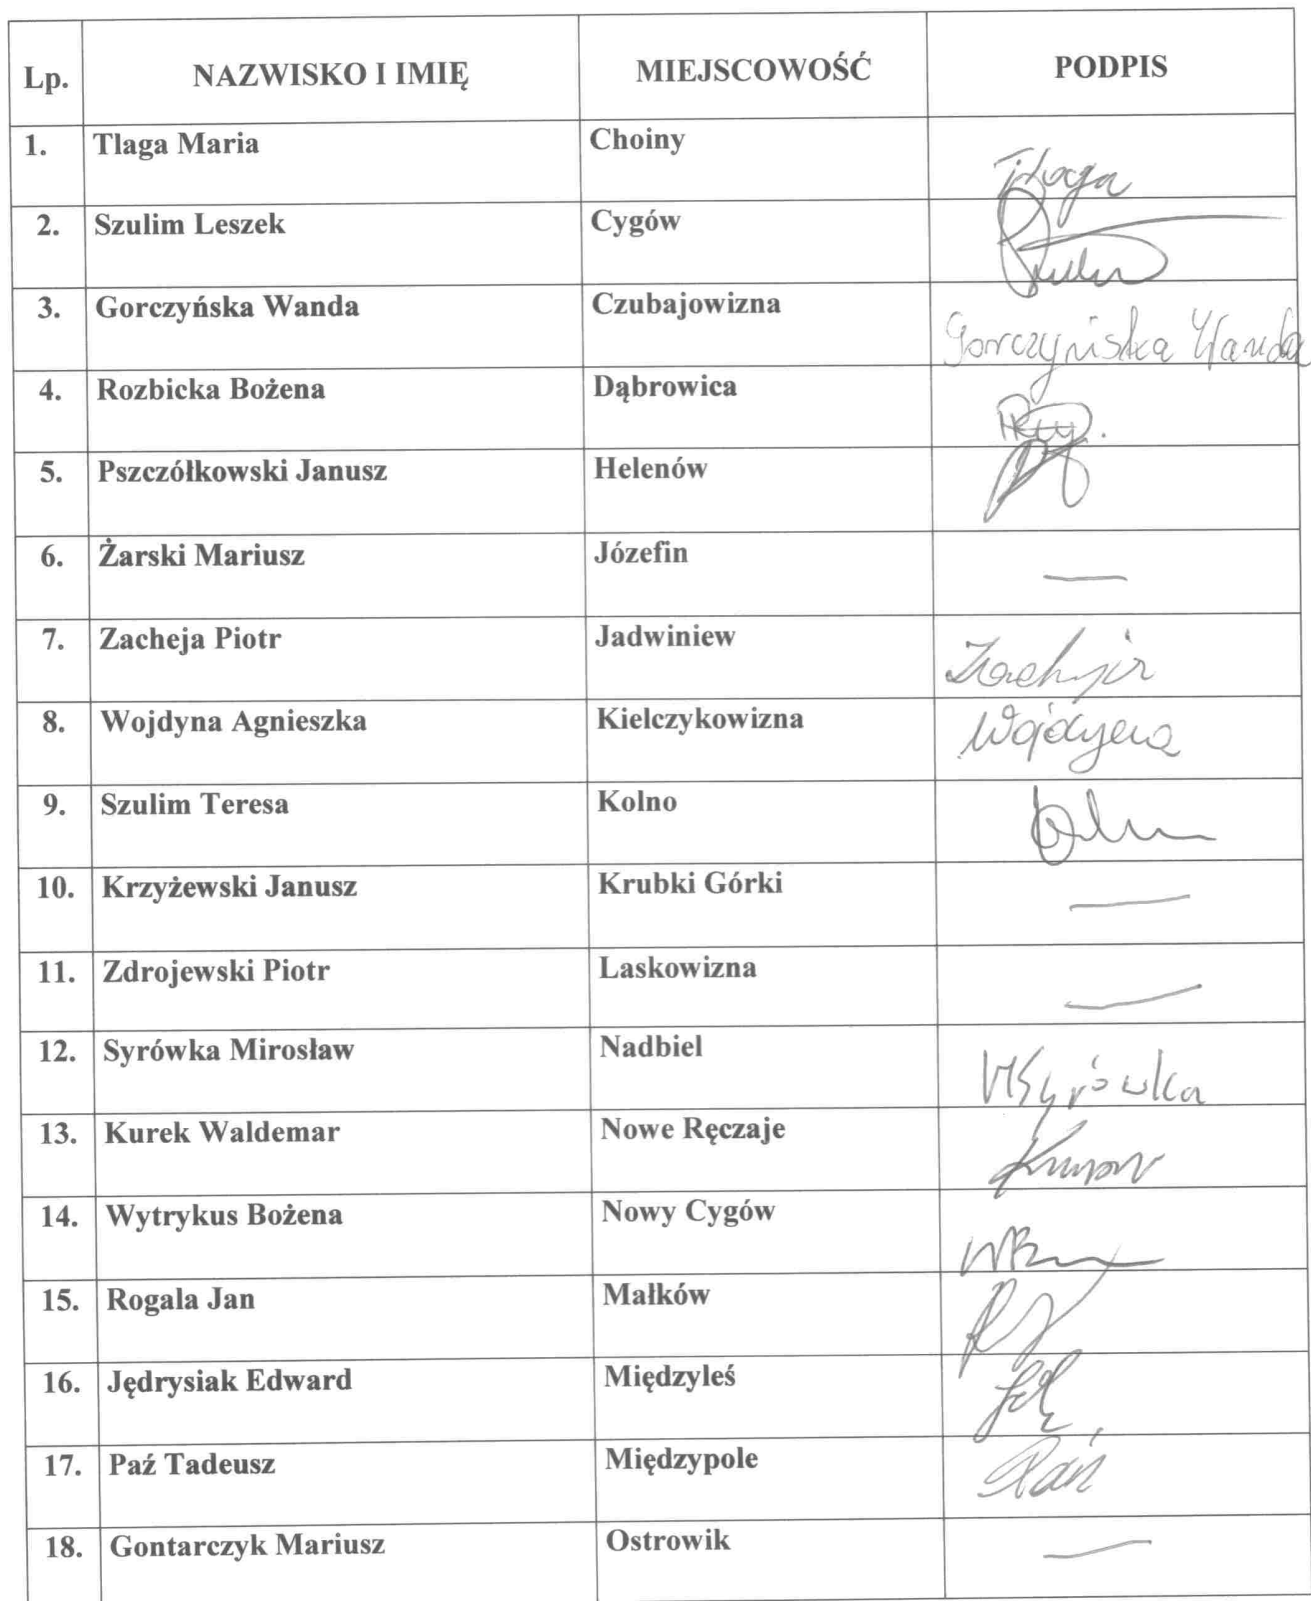 Lp. NAZWISKO I IMIĘ MIEJSCOWOŚĆ PODPIS
1. Tlaga Maria Choiny Tlaga
2. Szulim Leszek Cygów
3. Gorczyńska Wanda Czubajowizna Gorczyńska Wanda
4. Rozbicka Bożena Dąbrowica
5. Pszczółkowski Janusz Helenów
6. Żarski Mariusz Józefin —
7. Zacheja Piotr Jadwiniew
8. Wojdyna Agnieszka Kielczykowizna Wojdyna
9. Szulim Teresa Kolno
10. Krzyżewski Janusz Krubki Górki —
11. Zdrojewski Piotr Laskowizna —
12. Syrówka Mirosław Nadbiel MSyrówka
13. Kurek Waldemar Nowe Ręczaje
14. Wytrykus Bożena Nowy Cygów
15. Rogala Jan Małków
16. Jędrysiak Edward Międzyleś
17. Paź Tadeusz Międzypole Paź
18. Gontarczyk Mariusz Ostrowik —